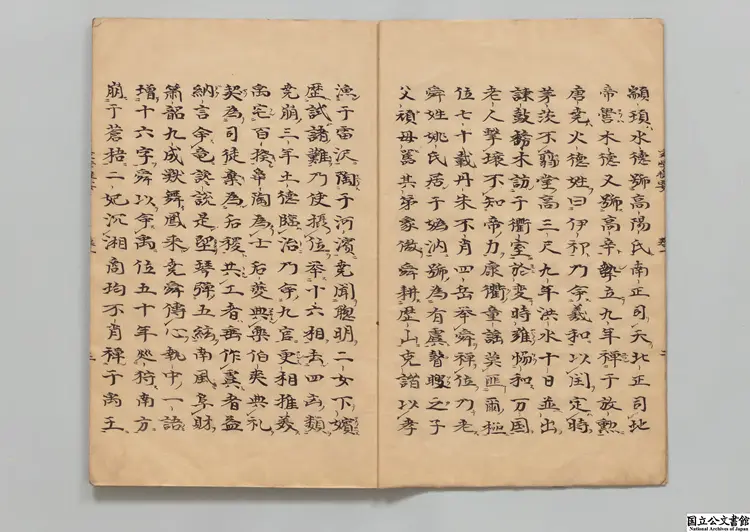 顓頊水德號高陽氏南正司天北正司地
帝嚳木德又號高辛摯立九年禪于放勲
唐堯火德姓曰伊祁乃命羲和以閏定時
茅茨不翦堂高三尺九年洪水十日並出
諌鼓謗木訪于衢室於変時雍協和万国
老人撃壌不知帝力康衢童謡莫匪爾極
位七十載丹朱不肖四岳举舜禅位乃老
舜姓姚氏居于媯汭號為有虞瞽瞍之子
父頑母嚚其弟象傲舜耕歴山克諧以孝
漁于雷沢陶于河濱堯聞聰明二女下嬪
歴試諸難乃使摂位举十六相去四凶類
堯崩三年土德臨治乃命九官更相推
禹宅百揆皐陶為士后夔典樂伯夷典礼
契為司徒棄為后稷共工者垂作虞者益
納言命竜讒説是堲琴弾五絃南風阜財
簫韶九成獣舞鳳来堯舜傳心執中一語
増十六字舜以命禹位五十年巡狩南方
崩于蒼梧二妃沉湘商均不肖禅于禹王
国立公文書館
National Archives of Japan